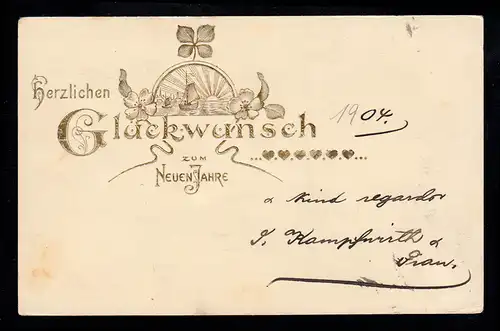 Herzlichen
Glückwunsch
1904.
ZUM
NEUEN JAHRE
& kind regards
J. Kampfwirth &
Frau.